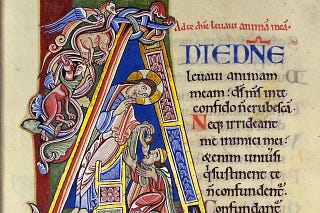 Ad te dn̄e leuaui animā meā.
D TE DN̄E
leuaui animam
meam: ds̄ m̄s inte
confido n̄ erubescā.
Neq; irrideant
me inimici mei:
&enim uniuſi
q̇ſuſtinent te
n̄confundent᷑.
Confundant᷑